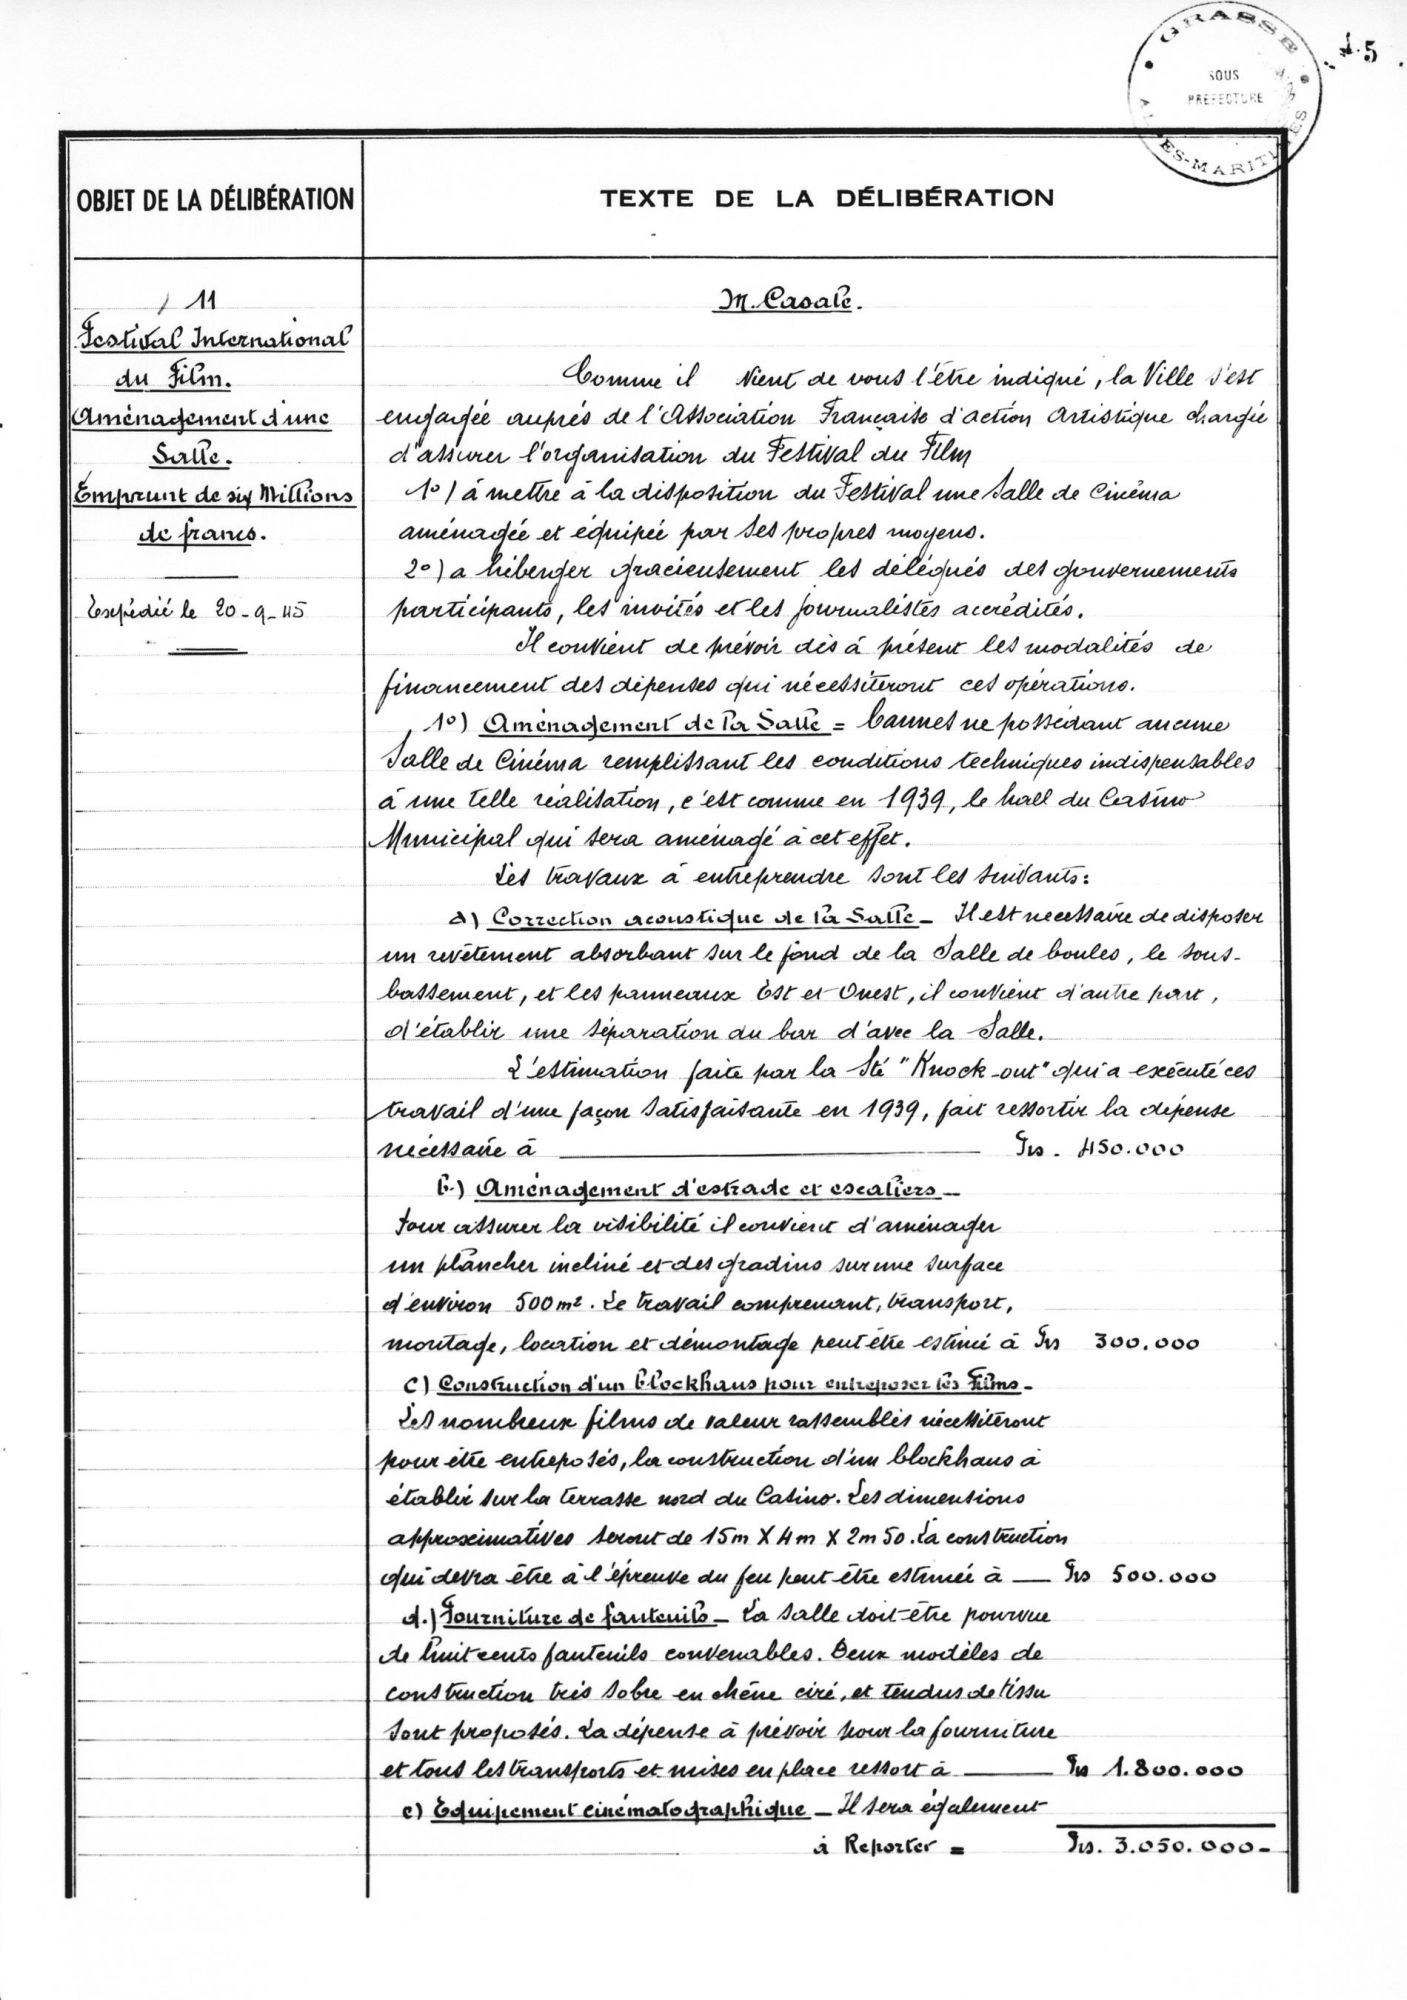 GRASSE
SOUS
PREFECTURE
ALPES-MARITIMES
OBJET DE LA DÉLIBÉRATION
TEXTE DE LA DÉLIBÉRATION
11
Festival International
du Film.
Aménagement d'une
Salle.
Emprunt de six Millions
de francs.
Expédié le 20-9-45
M. Casale.
Comme il vient de vous l'être indiqué, la Ville s'est
engagée auprès de l'Association Française d'action Artistique chargée
d'assurer l'organisation du Festival du Film
1°) à mettre à la disposition du Festival une Salle de Cinéma
aménagée et équipée par ses propres moyens.
2°) a héberger gracieusement les délégués des gouvernements
participants, les invités et les journalistes accrédités.
Il convient de prévoir dès à présent les modalités de
financement des dépenses qui nécessiteront ces opérations.
1°) Aménagement de la Salle = Cannes ne possédant aucune
Salle de Cinéma remplissant les conditions techniques indispensables
à une telle réalisation, c'est comme en 1939, le hall du Casino
Municipal qui sera aménagé à cet effet.
Les travaux à entreprendre sont les suivants:
a) Correction acoustique de la Salle - Il est necessaire de disposer
un revêtement absorbant sur le fond de la Salle de boules, le sous-
bassement, et les panneaux Est et Ouest, il convient d'autre part,
d'établir une séparation du bar d'avec la Salle.
L'estimation faite par la Sté "Knock-out" qui a exécuté ces
travail d'une façon satisfaisante en 1939, fait ressortir la dépense
nécessaire à Frs. 450.000
b.) Aménagement d'estrade et escaliers -
Pour assurer la visibilité il convient d'aménager
un plancher incliné et des gradins sur une surface
d'environ 500m². Le travail comprenant, transport,
montage, location et démontage peut être estimé à Frs 300.000
c) Construction d'un blockhaus pour entreposer les Films -
Les nombreux films de valeur rassemblés nécessiteront
pour être entreposés, la construction d'un blockhaus à
établir sur la terrasse nord du Casino. Les dimensions
approximatives seront de 15m X 4m X 2m50. La construction
qui devra être à l'épreuve du feu peut être estimée à Frs 500.000
d.) Fourniture de fauteuils - La salle doit être pourvue
de huit cents fauteuils convenables. Deux modèles de
construction très sobre en chêne ciré, et tendus de tissu
sont proposés. La dépense à prévoir pour la fourniture
et tous les transports et mises en place ressort à Frs 1.800.000
e) Equipement cinématographique - Il sera également
à Reporter = Frs. 3.050.000-